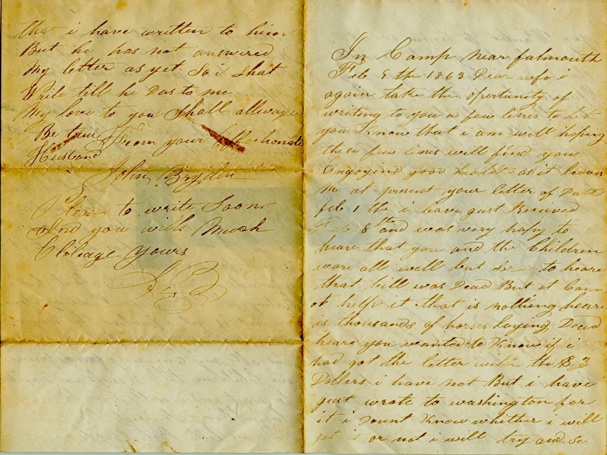 that i have written to him
But he has not answered
My letter as yet So i Shat
Write till he Dus to me
My love to you Shall allways
Be true from your affechonate
Husband
John Brydin
Pleas to write Soon
And you will Much
Obleage yours
J. B.
In Camp near falmouth
Feb 8 th 1863 Dear wife i
again take the oportunity of
writing to you a few lines to let
you Know that i am well hoping
these few lines will find you
Engoying good health as it leaves
me at present your letter of Date
feb 1 the i have just Receved
8th and was very hapy to
heare that you and the Children
ware all well but to heare
that bill was Dead But it Cannot
help it that is nothing heare
is thousands of horses laying Dead
heare you wanted to Know if i
had got the letter with the 83
Dollers i have not But i have
just wrote to washington for
it i dount Know whether i will
get it or not i will try and Se